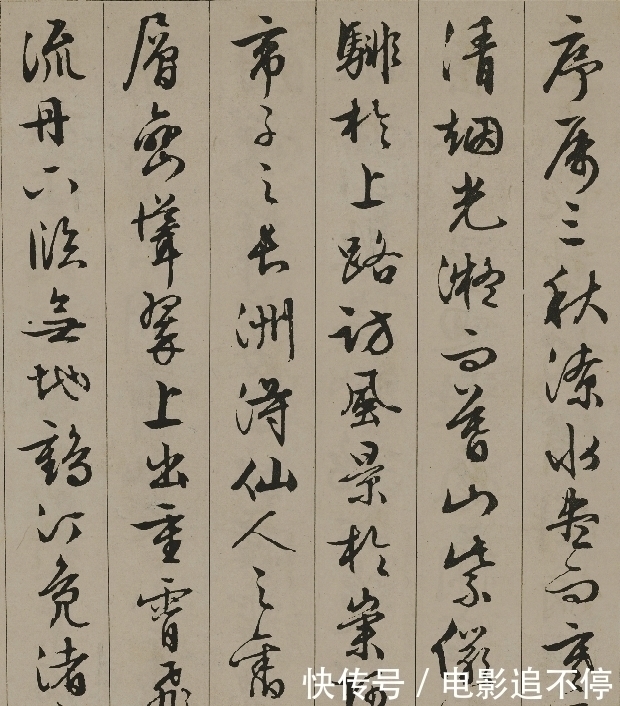 序屬三秋潦水盡而寒
清烟光凝而暮山紫儼
騑於上路訪風景於崇阿
帝子之長洲得仙人之舊
層巒聳翠上出重霄飛
流丹下臨無地鶴汀鳧渚
快传号 / 电影追不停